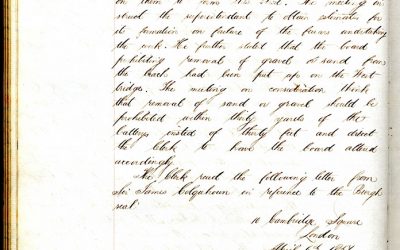 on them to
The meeting in
struct the superintendant to obtain estimates for
its formation on failure of the feuars undertaking
the work. He further stated that the board
prohibiting removal of gravel & sand from
the beach had been put up on the West
bridge. The meeting on consideration think
that removal of sand or gravel should be
prohibited within thirty yards of the
battery insted of thirty feet and direct
the Clerk to have the board altered
accordingly.
The Clerk read the following letter from
Sir James Colquhoun in reference to the Burgh
seal.
Cambridge Square
London